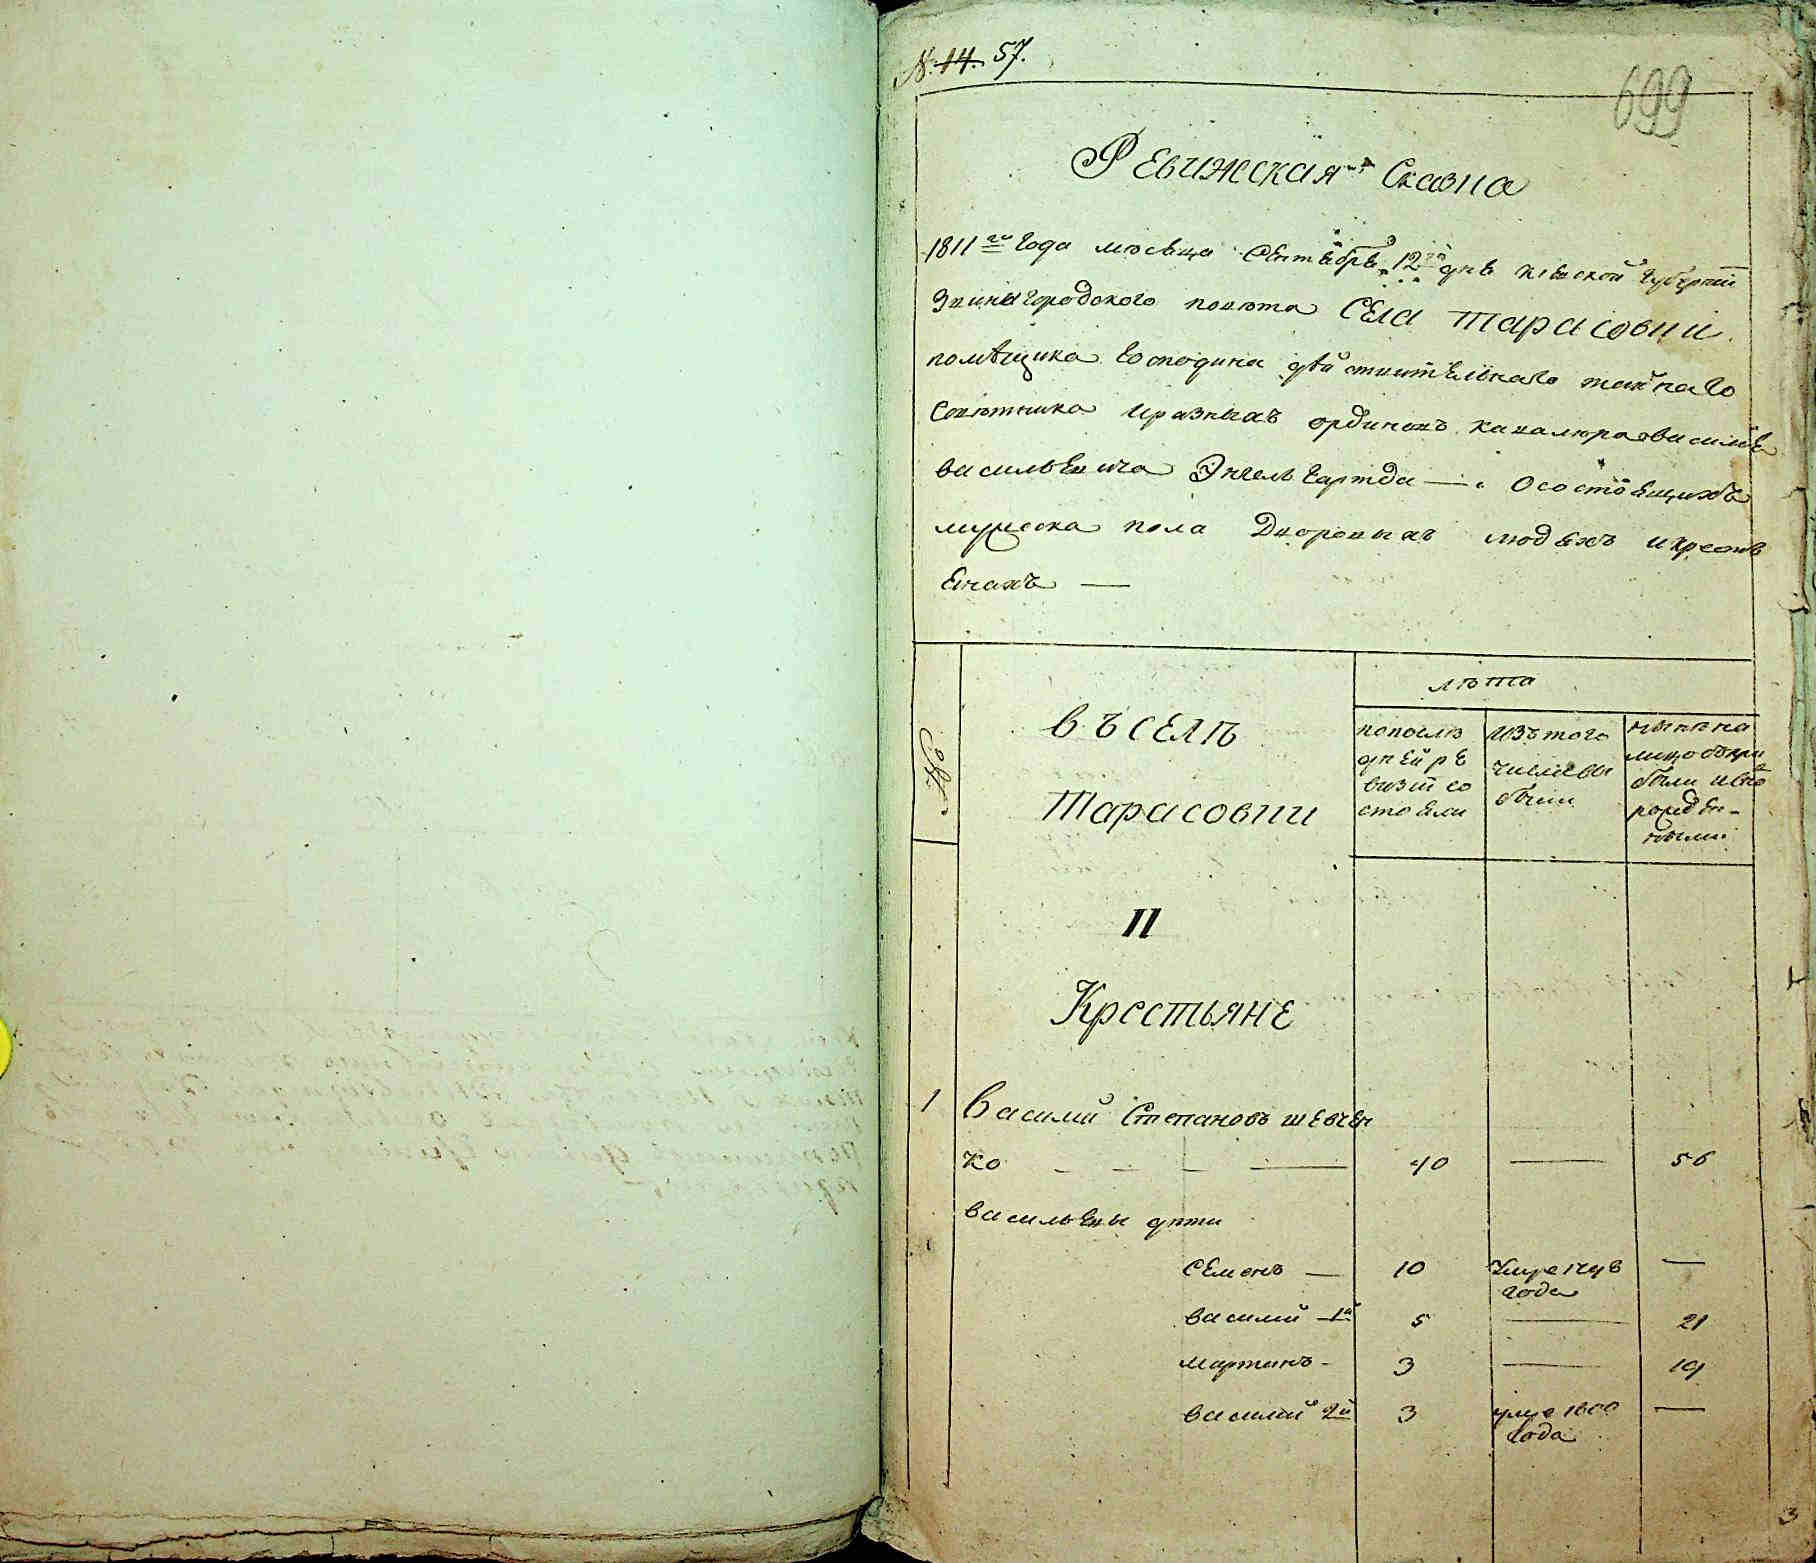 № 14. 57.
699
Ревижская Сказка
1811го Года месяца Сентебре 12го дня киевской губернии
Звинигородского повета Села Тарасовки
помѣщика Господина дѣйствительнаго тайнаго
Советника иразныхъ ординовъ кавалера василия
васильевича Энгельгартда — Осостоящихъ
мужеска пола Дворовыхъ людяхъ икресть
янахъ —
лѣта
В ъ С Е Л Ѣ
Тарасовки
попосле
дней ре
визии со
стояли
изътого
числавы
были
нынѣна
лицо
были ивно
рожден-
ными
II
Крестьяне
1 Василий Степановъ шевчен
ко — 40 — 56
васильевы дѣти
Семенъ — 10 Умре 1798
года —
василий 1й 5 — 21
мартинъ - 3 — 19
василий 2й 3 умре 1800
года —
3